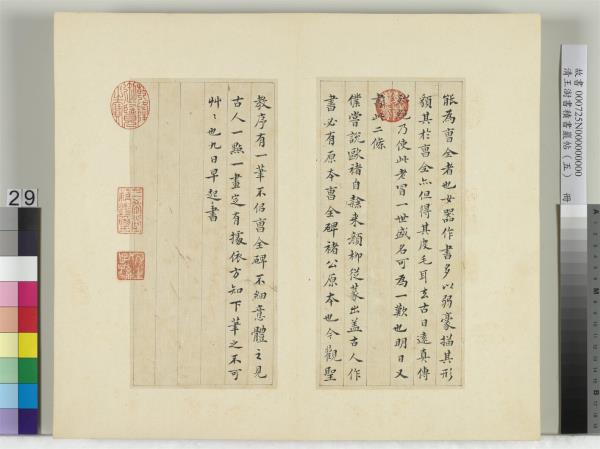 能為曹全者也女器作書多以弱豪描其形
額其於曹全亦但得其皮毛耳去古日遠真傳
乃使此老冒一世盛名可為一歎也明日又
書此二條
僕嘗説歐褚自隸来顏柳從篆出盖古人作
書必有原本曹全碑褚公原本也今觀聖
教序有一筆不佀曹全碑不細意體之見
古人一點一畫定有據依方知下筆之不可
艸〻也九日早起書
故書000725N000000000
清王澍書積書巖帖(五) 冊
29